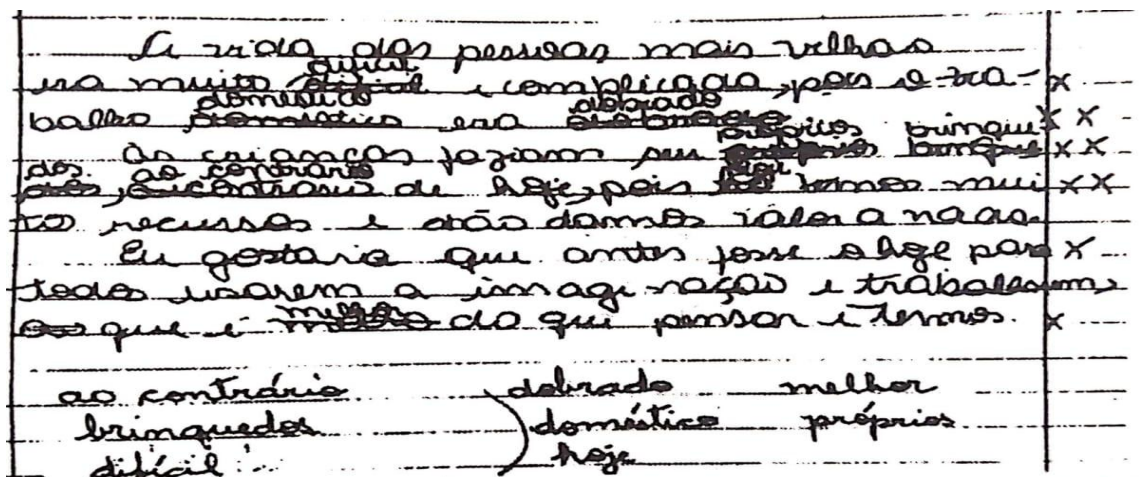 A vida das pessoas mais velhas
era muito difícil e complicada, pois o tra-
balho doméstico era dobrado
As crianças faziam seu próprios brinque
dos. ao contrário de hoje, pois hoje temos mui
to recursos e não damos valor a nada.
Eu gostaria que antes fosse o hoje para
todos usarem a imaginação e trabalharem,
que é melhor do que pensar e termos.
ao contrário dobrado melhor
brinquedos doméstico próprios
difícil hoje